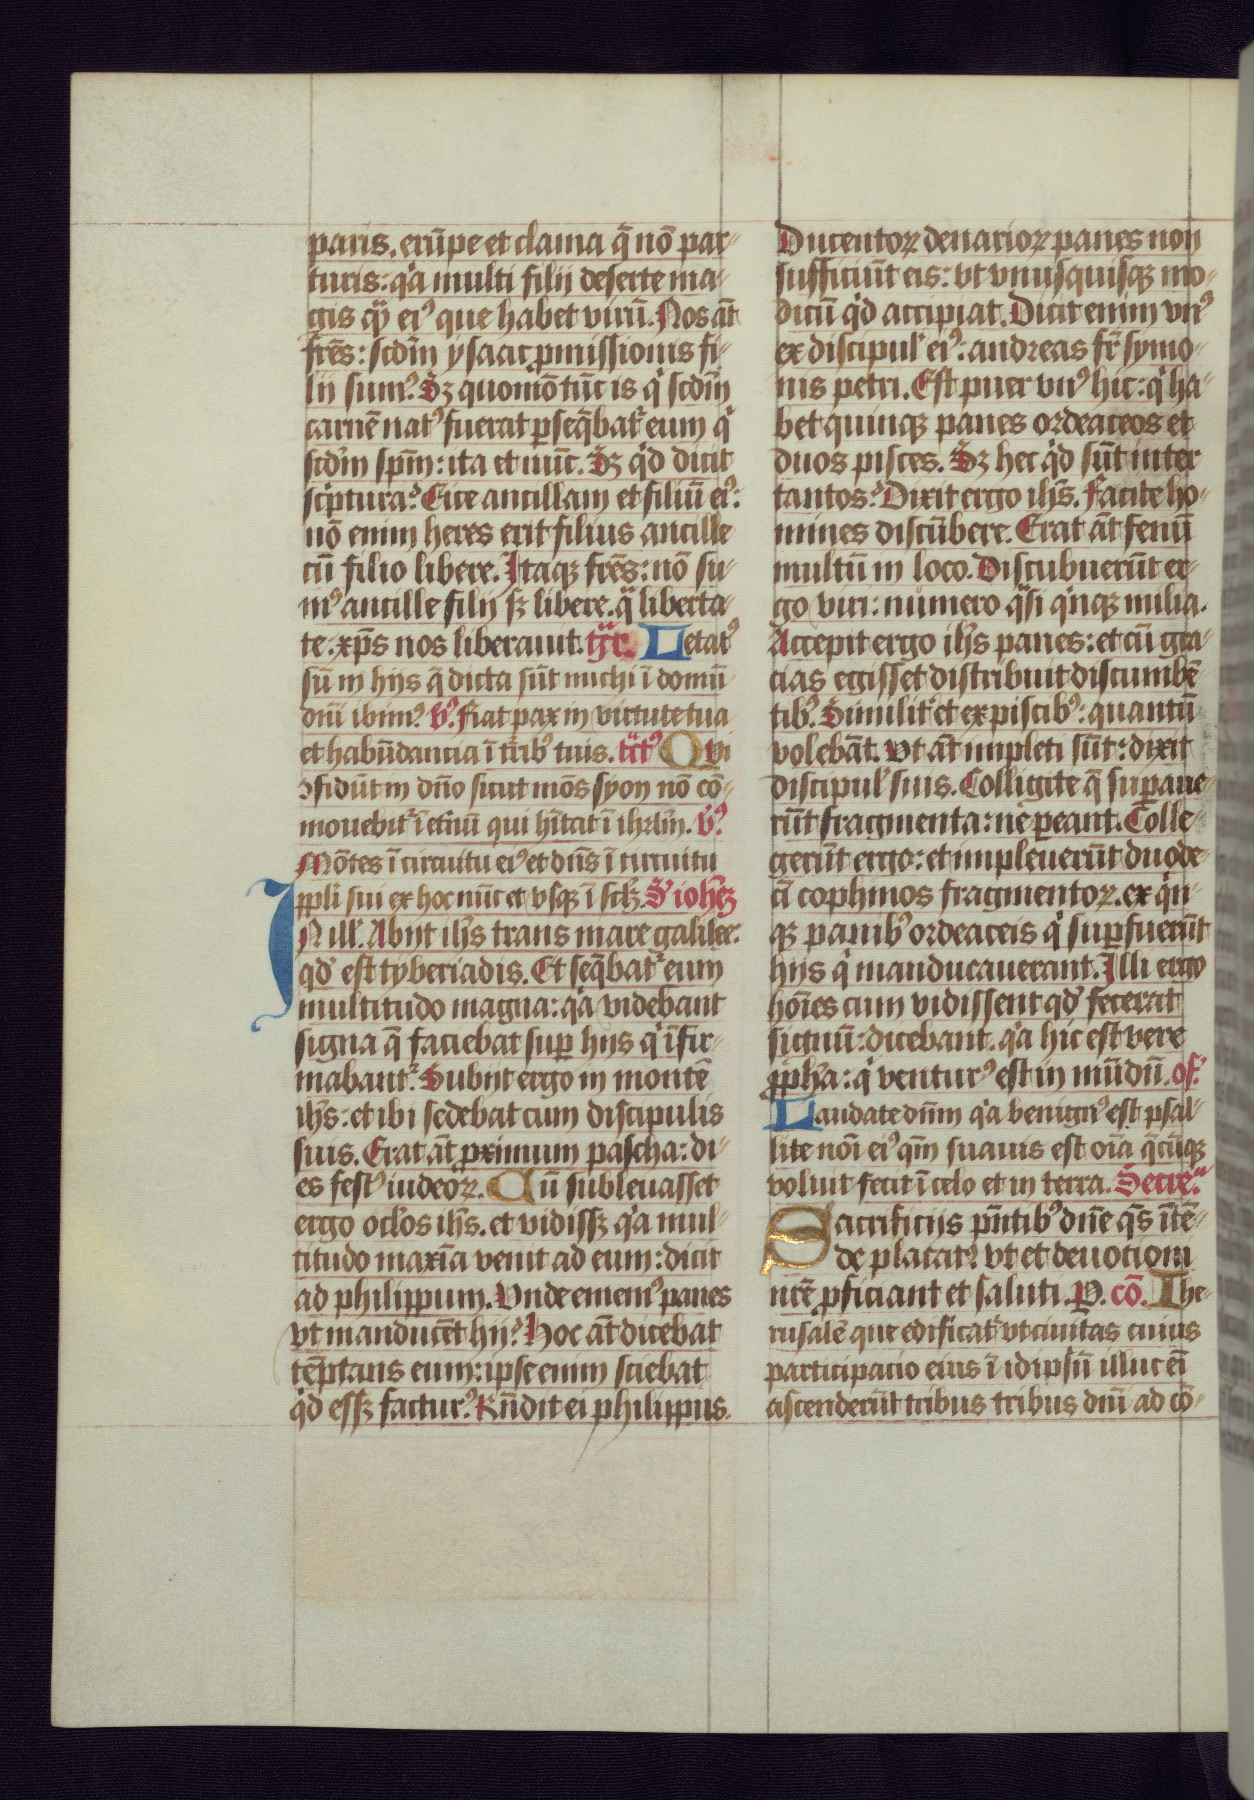 paris. erūpe et clama q̄ nō par-
turis: qͥa multi filij deserte ma-
gis qͣꝫ eiꝰ que habet virū. Nos āt
frēs: scdm̄ ysaac ꝓmissionis fi-
lij sumꝰ. Sꝫ quomō tūc is qͥ scdm̄
carnē natꝰ fuerat ꝑseq̄batᷣ eum qͥ
scdm̄ spm̄: ita et nūc. Sꝫ qͥd dicit
scͥptura? Eice ancillam et filiū eiꝰ:
nō enim heres erit filius ancille
cū filio libere. Itaqꝫ frēs: nō su-
mꝰ ancille filij sꝫ libere. qͣ liberta-
te: xp̄s nos liberauit. gͬr. Letatꝰ
sū in hijs q̄ dicta sūt michi ī domū
dn̄i ibimꝰ. v̓. Fiat pax in virtute tua
et habūdancia ī tͬribꝰ tuis. tͣctꝰ Qvi
ꝯfidūt in dn̄o sicut mōs syon nō cō-
mouebitᷣ ī et̄nū qui hītat ī ihrl̄m. v̓.
Mōtes ī circuitu eiꝰ et dn̄s ī circuitu
ppl̄i sui ex hoc nūc et vsqꝫ ī scl̄ꝫ. S' ioheꝫ
In ill'. Abijt ih̄s trans mare galilee:
qd' est tyberiadis. Et seq̄batᷣ eum
multitudo magna: qͥa videbant
signa q̄ faciebat suꝑ hijs qͥ īfir-
mabantᷣ. Subijt ergo in montē
ih̄s: et ibi sedebat cum discipulis
suis. Erat āt ꝓximum pascha: di-
es festꝰ iudeoꝝ. Cū subleuasset
ergo oclos ih̄s. et vidissꝫ qͥa mul-
titudo maxīa venit ad eum: dicit
ad philippum. Vnde ememꝰ panes
vt manducēt hij? Hoc āt dicebat
tēptans eum: ipse enim sciebat
qͥd essꝫ facturꝰ. Rn̄dit ei philippus.
Ducentoꝝ denarioꝝ panes non
sufficiūt eis: vt vnusquisqꝫ mo-
dicū qͥd accipiat. Dicit enim vnꝰ
ex discipul' eiꝰ: andreas fr̄ symo-
nis petri. Est puer vnꝰ hic: qͥ ha-
bet quinqꝫ panes ordeaceos et
duos pisces. Sꝫ hec qͥd sūt inter
tantos? Dixit ergo ih̄s. Facite ho-
mines discūbere. Erat āt fenū
multū in loco. Discubuerūt er-
go viri: numero qͣsi qͥnqꝫ milia.
Accepit ergo ih̄s panes: et cū gra-
cias egisset distribuit discumbē-
tibꝰ. Similitᷣ et ex piscibꝰ: quantū
volebāt. Vt āt impleti sūt: dixit
discipul' suis. Colligite q̄ suꝑaue-
rūt fragmenta: ne ꝑeant. Colle-
gerūt ergo: et impleuerūt duode-
cī cophinos fragmentoꝝ. ex qͥn-
qꝫ panibꝰ ordeaceis qͥ suꝑfuerūt
hijs qͥ manducauerant. Illi ergo
hoīes cum vidissent qd' fecerat
signū: dicebant. qͥa hic est vere
ꝓph̄a: qͥ venturꝰ est in mūdū. of.
Laudate dn̄m qͥa benignꝰ est psal-
lite noī eiꝰ qm̄ suauis est oīa q̄cūqꝫ
voluit fecit ī celo et in terra. Secreͣ
Sacrificijs pn̄tibꝰ dn̄e q̄s ītē-
de placatꝰ: vt et deuotioni
nr̄e ꝓficiant et saluti. P. cō. Ihe-
rusalē que edificatᷣ vt ciuitas cuius
participacio eius ī idipsū illuc eī
ascenderūt tribus tribus dn̄i ad cō-